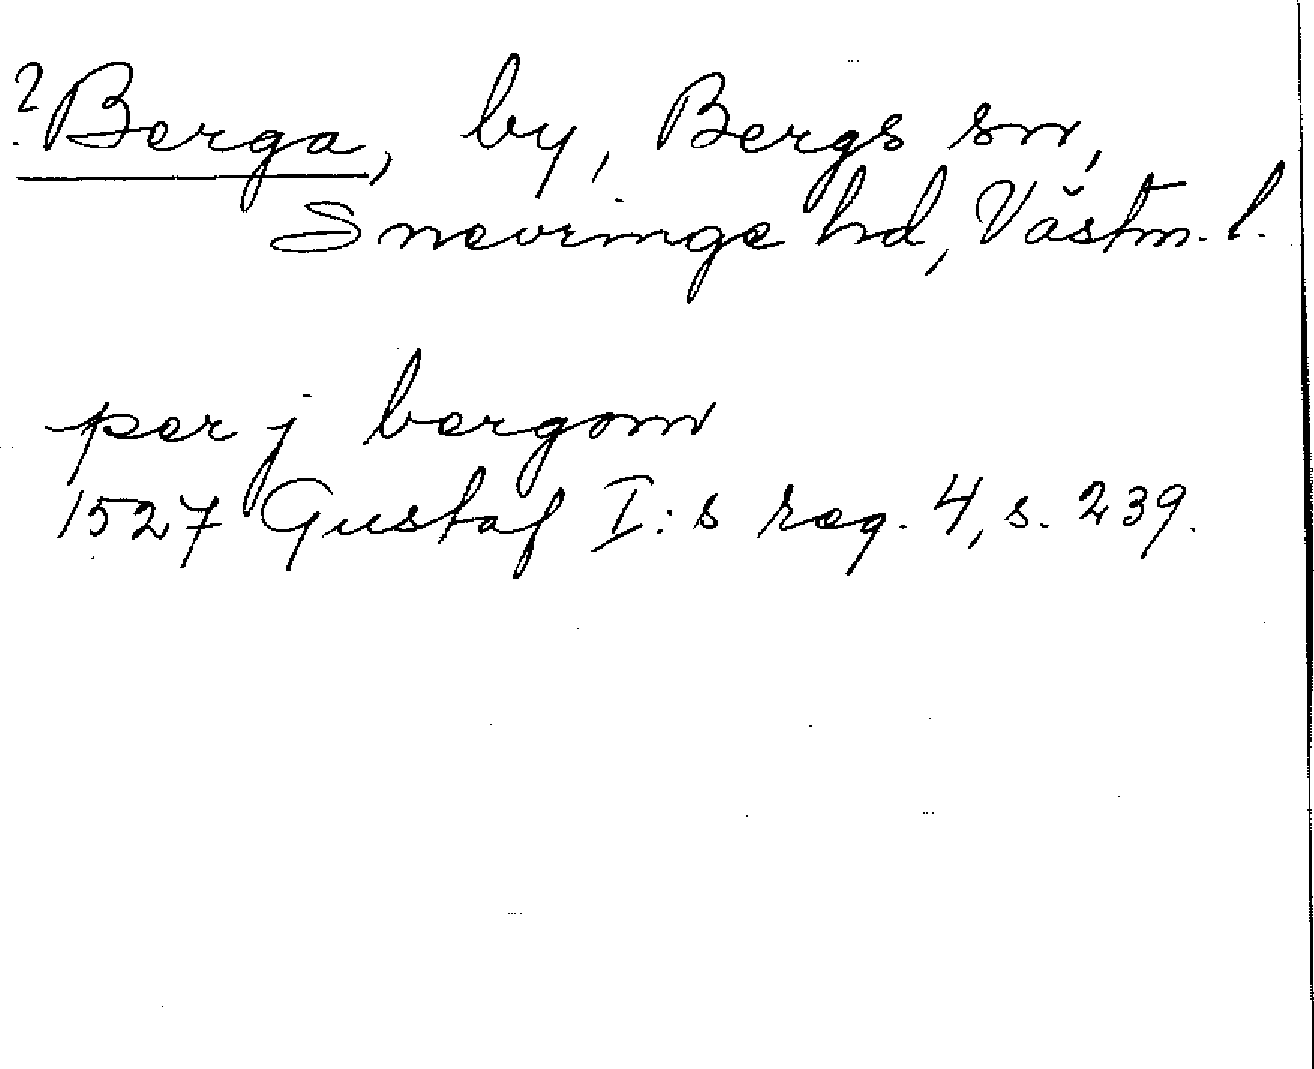 ? Berga, by, Bergs sn,
Snevringe hd, Västm. l.
per j bergom
1527 Gustaf I:s reg. 4, s. 239.